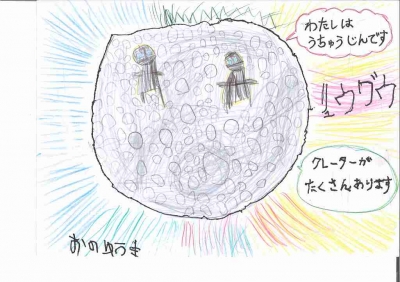 わたしは
うちゅうじんです
リュウグウ
クレーターが
たくさんあります
おのゆうき